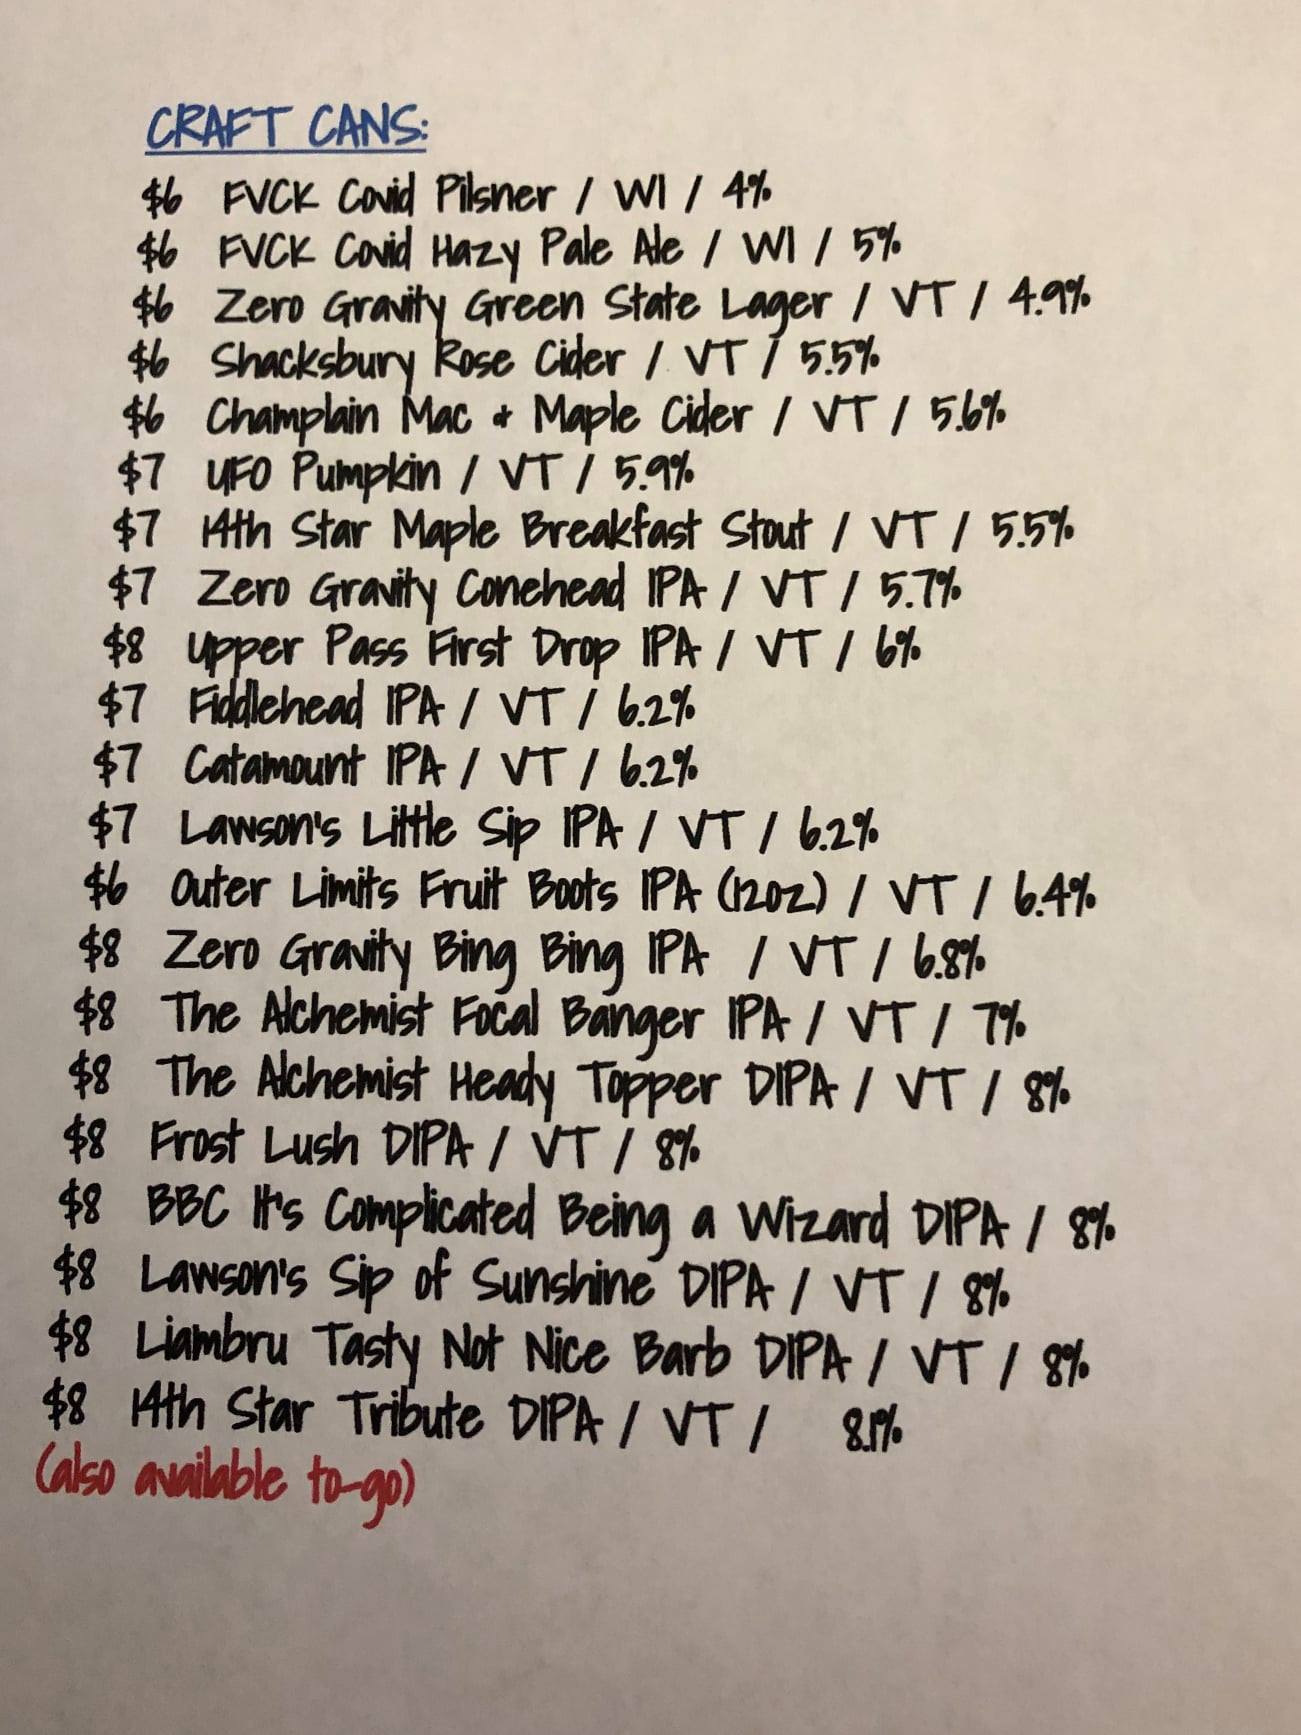 CRAFT CANS:
$6 FVCK Covid Pilsner / WI / 4%
$6 FVCK Covid Hazy Pale Ale / WI / 5%
$6 Zero Gravity Green State Lager / VT / 4.9%
$6 Shacksbury Rose Cider / VT / 5.5%
$6 Champlain Mac & Maple Cider / VT / 5.6%
$7 UFO Pumpkin / VT / 5.9%
$7 14th Star Maple Breakfast Stout / VT / 5.5%
$7 Zero Gravity Conehead IPA / VT / 5.7%
$8 Upper Pass First Drop IPA / VT / 6%
$7 Fiddlehead IPA / VT / 6.2%
$7 Catamount IPA / VT / 6.2%
$7 Lawson's Little Sip IPA / VT / 6.2%
$6 Outer Limits Fruit Boots IPA (12oz) / VT / 6.4%
$8 Zero Gravity Bing Bing IPA / VT / 6.8%
$8 The Alchemist Focal Banger IPA / VT / 7%
$8 The Alchemist Heady Topper DIPA / VT / 8%
$8 Frost Lush DIPA / VT / 8%
$8 BBC It's Complicated Being a Wizard DIPA / 8%
$8 Lawson's Sip of Sunshine DIPA / VT / 8%
$8 Liambru Tasty Not Nice Barb DIPA / VT / 8%
$8 14th Star Tribute DIPA / VT / 8.1%
(also available to-go)